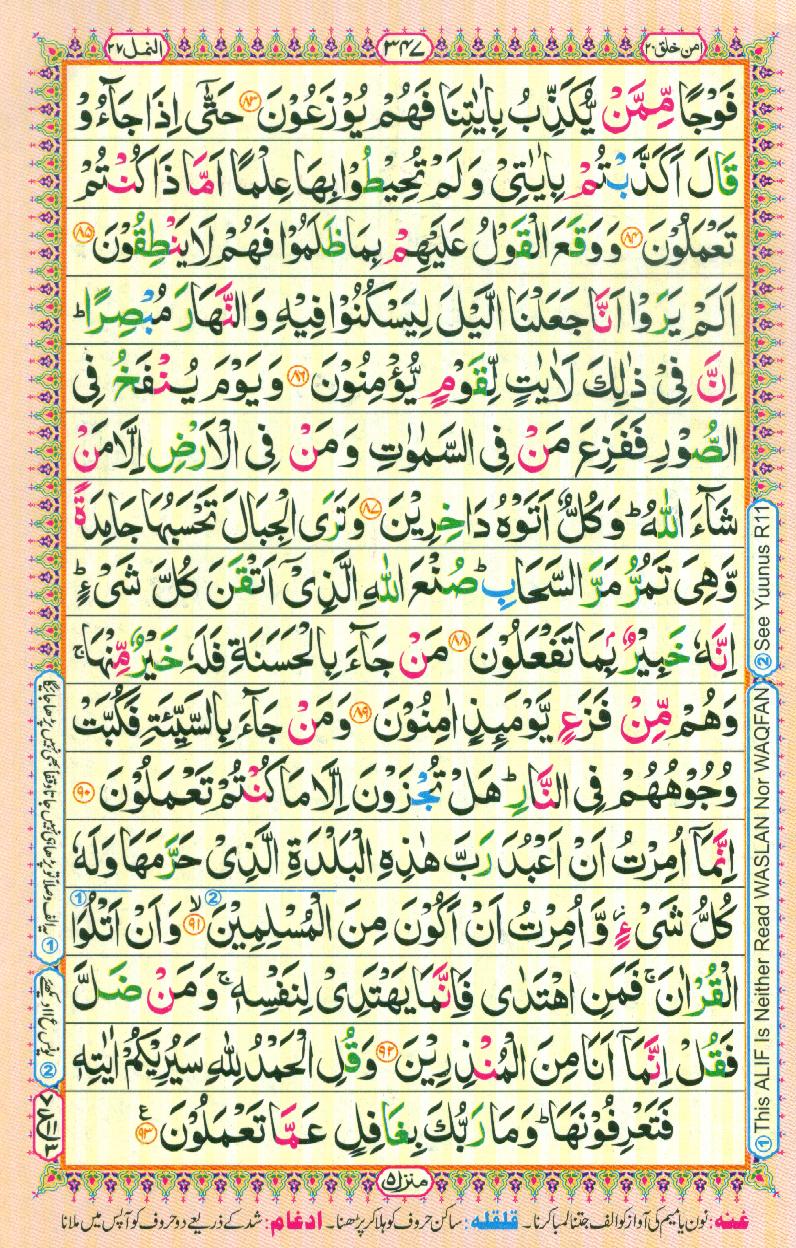 امن خلق ۲۰
۳۴۷
النمل ۲۷
فَوْجًا مِّمَّنْ يُّكَذِّبُ بِاٰيٰتِنَا فَهُمْ يُوْزَعُوْنَ ۝۸۳ حَتّٰۤى اِذَا جَآءُوْ
قَالَ اَكَذَّبْتُمْ بِاٰيٰتِيْ وَلَمْ تُحِيْطُوْا بِهَا عِلْمًا اَمَّا ذَا كُنْتُمْ
تَعْمَلُوْنَ ۝۸۴ وَوَقَعَ الْقَوْلُ عَلَيْهِمْ بِمَا ظَلَمُوْا فَهُمْ لَا يَنْطِقُوْنَ ۝۸۵
اَلَمْ يَرَوْا اَنَّا جَعَلْنَا الَّيْلَ لِيَسْكُنُوْا فِيْهِ وَالنَّهَارَ مُبْصِرًا ؕ
اِنَّ فِيْ ذٰلِكَ لَاٰيٰتٍ لِّقَوْمٍ يُّؤْمِنُوْنَ ۝۸۶ وَيَوْمَ يُنْفَخُ فِي
الصُّوْرِ فَفَزِعَ مَنْ فِي السَّمٰوٰتِ وَمَنْ فِي الْاَرْضِ اِلَّا مَنْ
شَآءَ اللّٰهُ ؕ وَكُلٌّ اَتَوْهُ دَاخِرِيْنَ ۝۸۷ وَتَرَى الْجِبَالَ تَحْسَبُهَا جَامِدَةً
وَّهِيَ تَمُرُّ مَرَّ السَّحَابِ ؕ صُنْعَ اللّٰهِ الَّذِيْۤ اَتْقَنَ كُلَّ شَيْءٍ ؕ
اِنَّهٗ خَبِيْرٌۢ بِمَا تَفْعَلُوْنَ ۝۸۸ مَنْ جَآءَ بِالْحَسَنَةِ فَلَهٗ خَيْرٌ مِّنْهَا ۚ
وَهُمْ مِّنْ فَزَعٍ يَّوْمَئِذٍ اٰمِنُوْنَ ۝۸۹ وَمَنْ جَآءَ بِالسَّيِّئَةِ فَكُبَّتْ
وُجُوْهُهُمْ فِي النَّارِ ؕ هَلْ تُجْزَوْنَ اِلَّا مَا كُنْتُمْ تَعْمَلُوْنَ ۝۹۰
اِنَّمَاۤ اُمِرْتُ اَنْ اَعْبُدَ رَبَّ هٰذِهِ الْبَلْدَةِ الَّذِيْ حَرَّمَهَا وَلَهٗ
كُلُّ شَيْءٍ وَّاُمِرْتُ اَنْ اَكُوْنَ مِنَ الْمُسْلِمِيْنَ ۙ۝۹۱ وَاَنْ اَتْلُوَا
الْقُرْاٰنَ ۚ فَمَنِ اهْتَدٰى فَاِنَّمَا يَهْتَدِيْ لِنَفْسِهٖ ۚ وَمَنْ ضَلَّ
فَقُلْ اِنَّمَاۤ اَنَا مِنَ الْمُنْذِرِيْنَ ۝۹۲ وَقُلِ الْحَمْدُ لِلّٰهِ سَيُرِيْكُمْ اٰيٰتِهٖ
فَتَعْرِفُوْنَهَا ؕ وَمَا رَبُّكَ بِغَافِلٍ عَمَّا تَعْمَلُوْنَ ۝۹۳ ع
① This ALIF Is Neither Read WASLAN Nor WAQFAN ② See Yuunus R11
① یہ الف وصلاً تو پڑھا ہی نہیں جاتا وقفاً بھی نہیں پڑھا جائیگا
منزل ۵
غنه: نون یا میم کی آواز کو الف جتنا لمبا کرنا۔ قلقله: ساکن حروف کو ہلا کر پڑھنا۔ ادغام: شد کے ذریعے دو حروف کو آپس میں ملانا